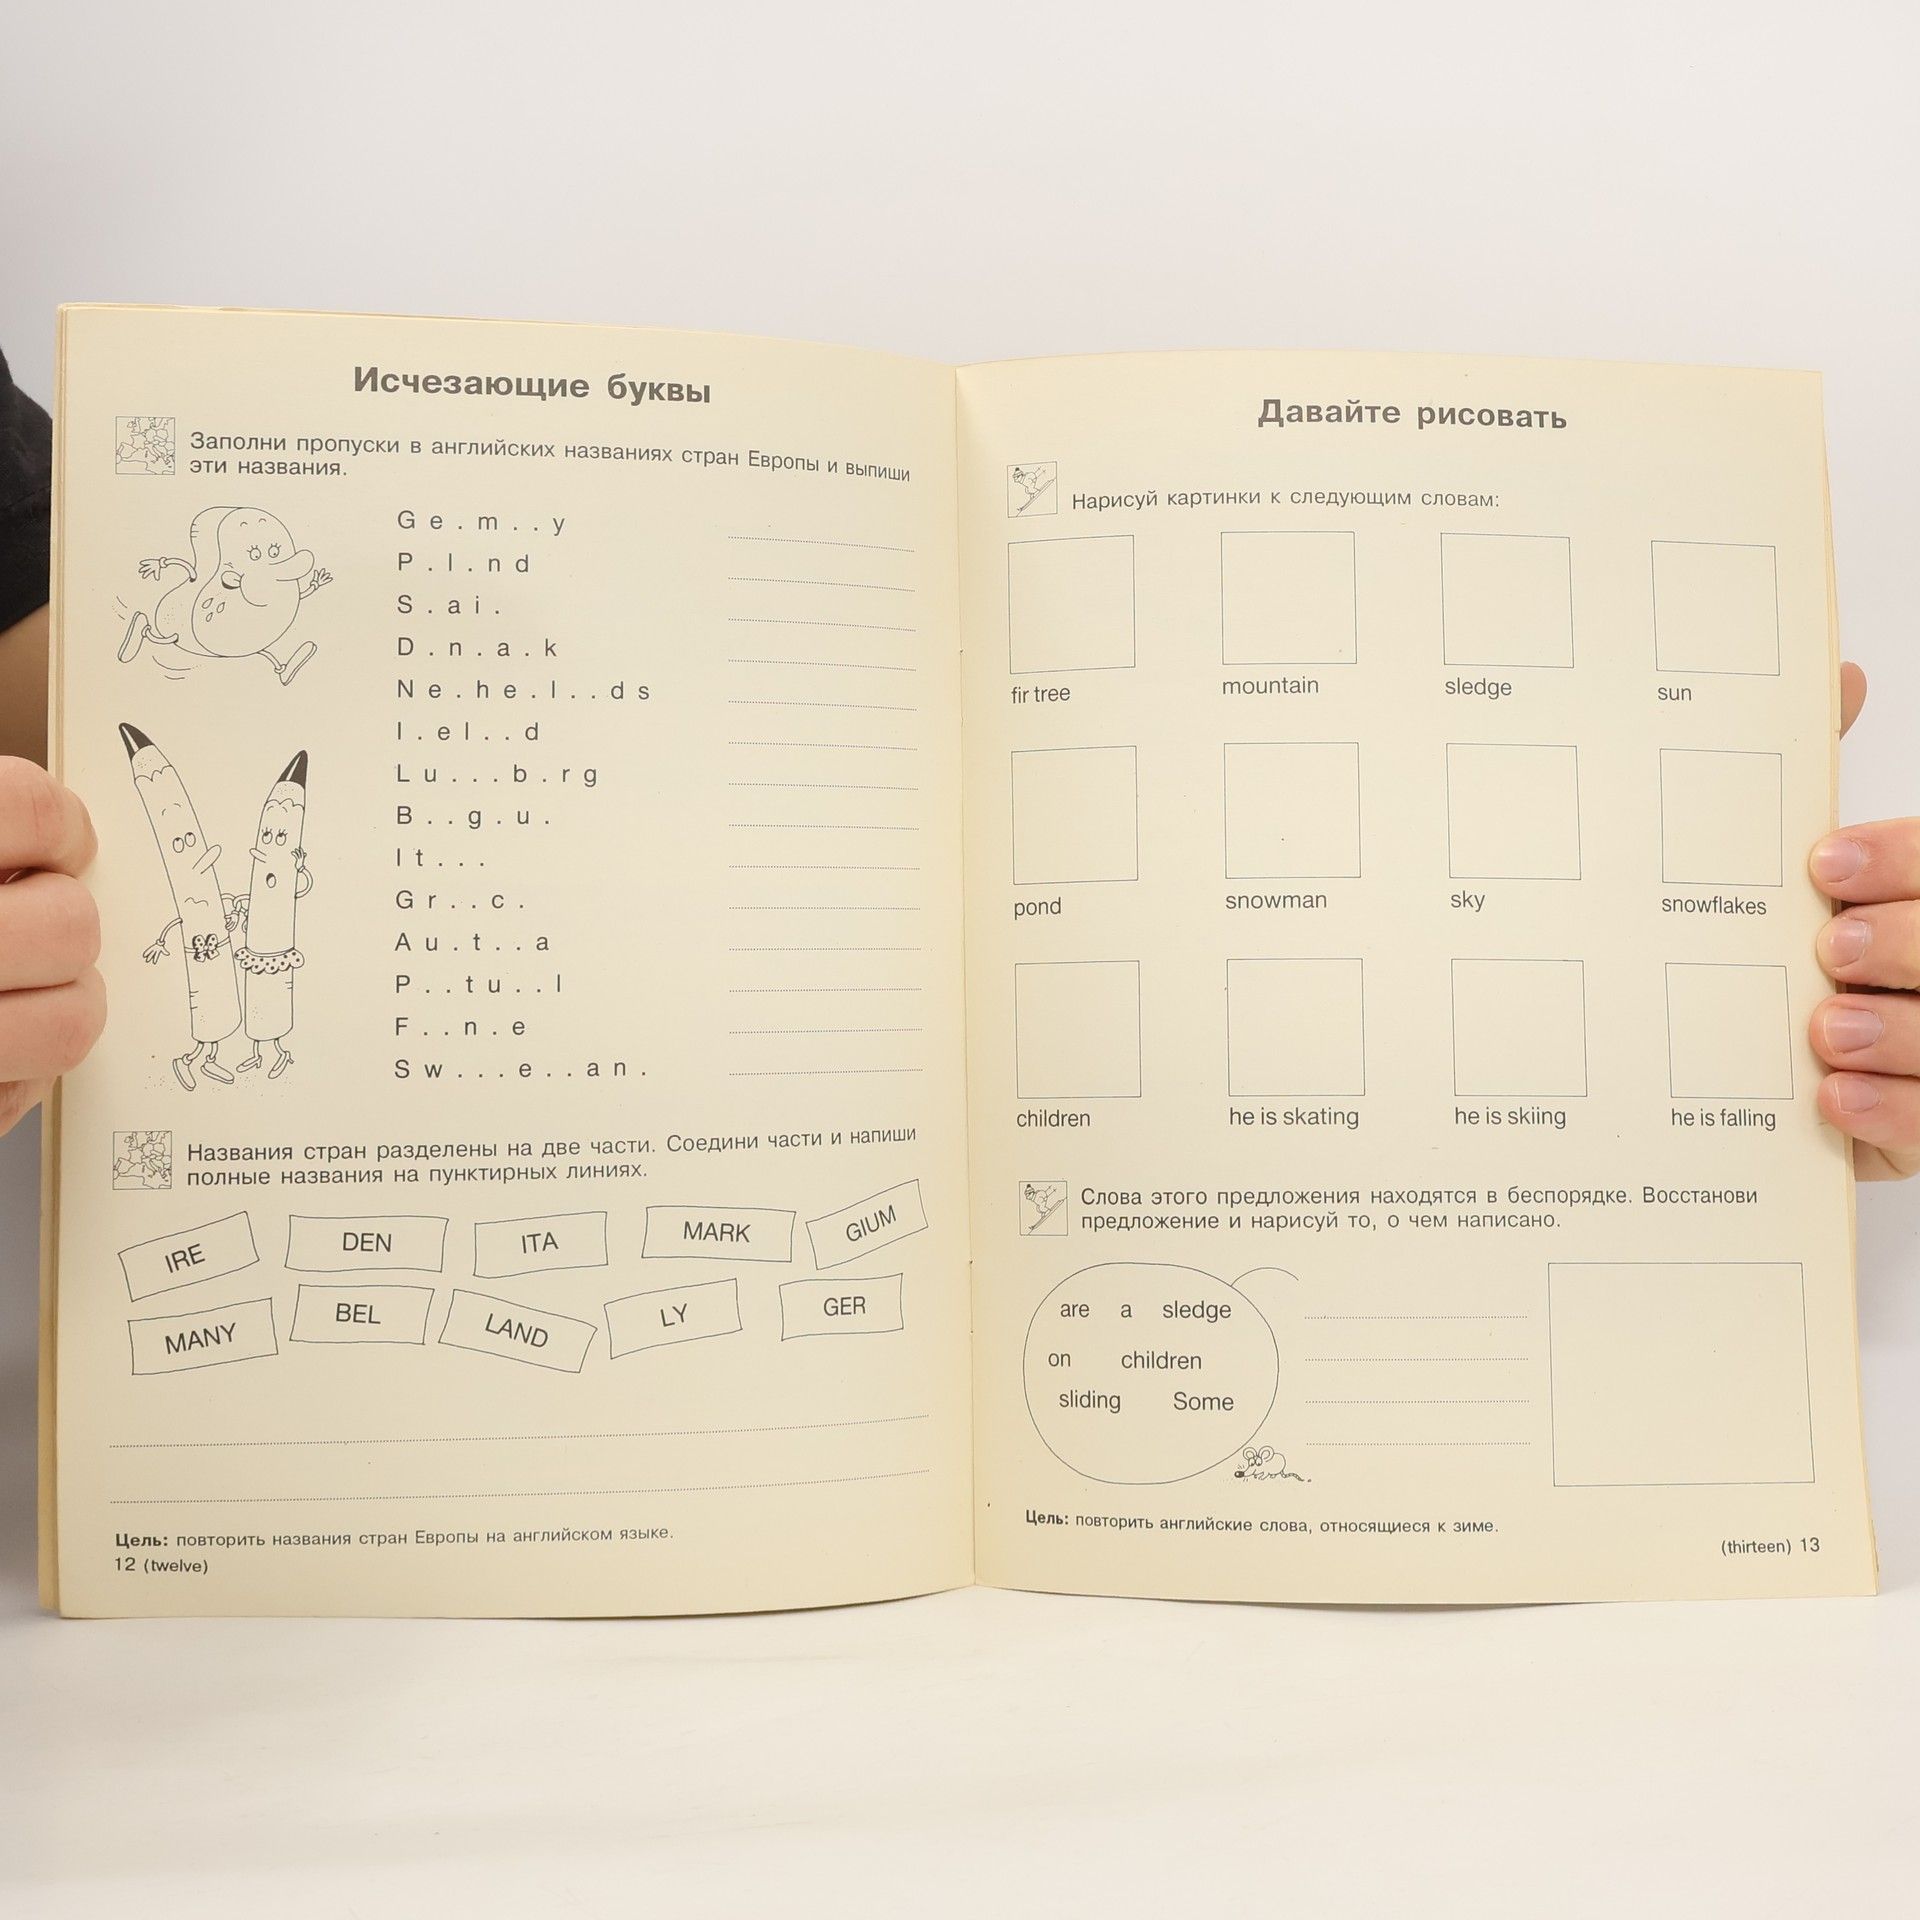 Исчезающие буквы
Заполни пропуски в английских названиях стран Европы и выпиши
эти названия.
G e . m . . y
P . l . n d
S . a i .
D . n . a . k
N e . h e . l . . d s
I . e l . . d
L u . . . b . r g
B . . g . u .
I t . . .
G r . . c .
A u . t . . a
P . . t u . . l
F . . n . e
S w . . . e . . a n .
Названия стран разделены на две части. Соедини части и напиши
полные названия на пунктирных линиях.
IRE DEN ITA MARK GIUM
MANY BEL LAND LY GER
Цель: повторить названия стран Европы на английском языке.
12 (twelve)
Давайте рисовать
Нарисуй картинки к следующим словам:
fir tree mountain sledge sun
pond snowman sky snowflakes
children he is skating he is skiing he is falling
Слова этого предложения находятся в беспорядке. Восстанови
предложение и нарисуй то, о чем написано.
are a sledge
on children
sliding Some
Цель: повторить английские слова, относящиеся к зиме.
(thirteen) 13